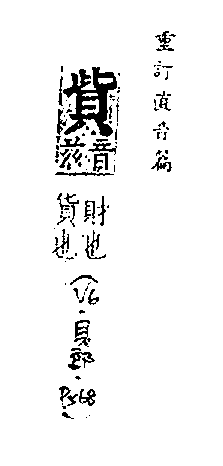 重訂直音篇
貲
音茲
財也
貨也
(V6.貝部.